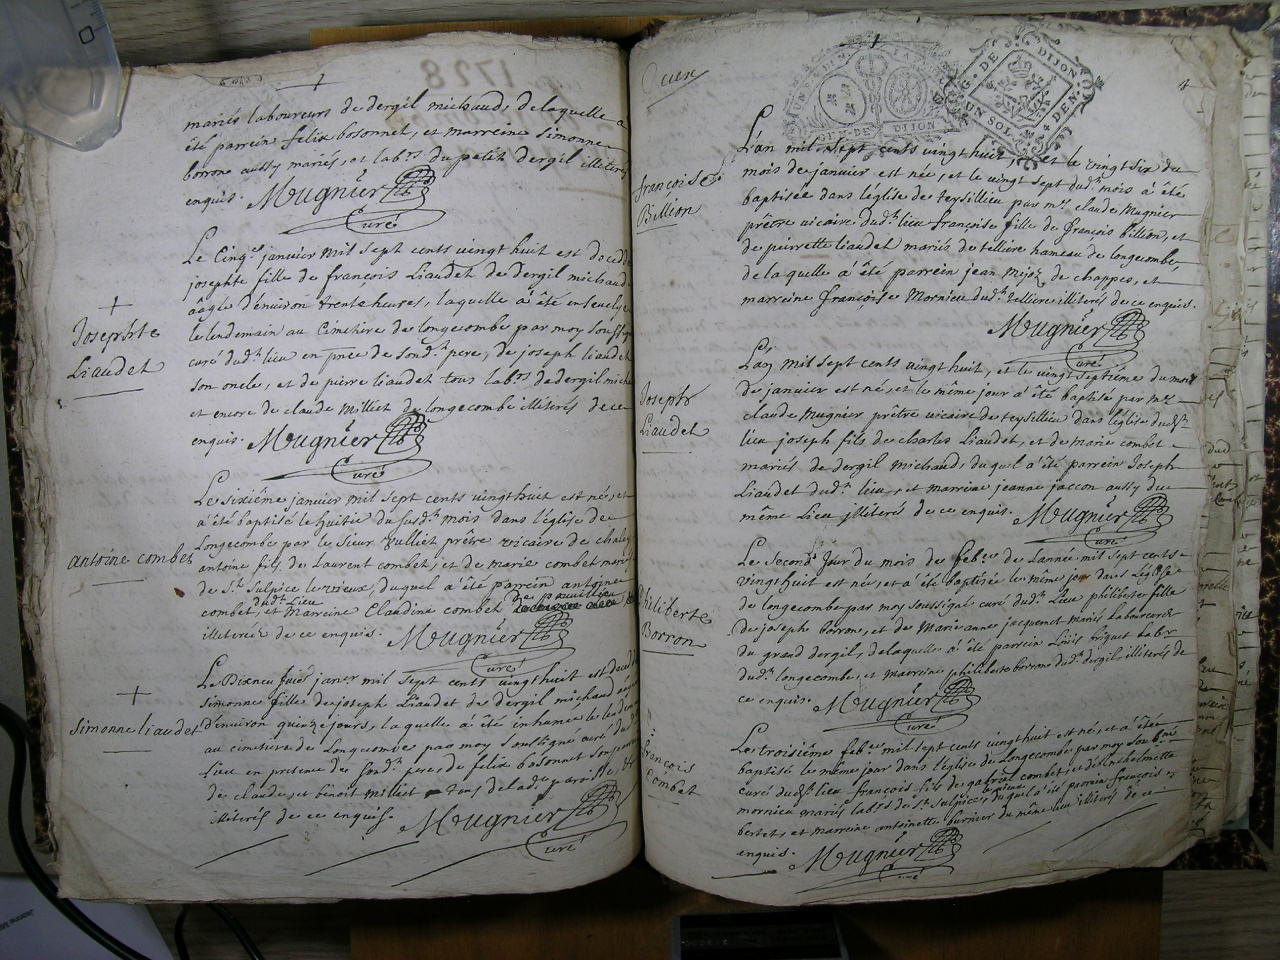 mariés laboureurs de dergil michaud, de laquelle a
été parrein felix bosonnet, et marreine simonne
borron aussy mariés, et lab.rs du petit dergil illiterés
enquis. Mugnier
Curé
Le Cinq.e janvier mil sept cents vingt huit est decedée
josephte fille de francois Liaudet de dergil michaud
aegée d'environ trente heures, laquelle à été ensevelye
le lendemain au Cimetire de longecombe par moy soussig.
curé dud.t lieu en pnce de sond.t pere, de joseph liaudet
son oncle, et de pierre liaudet tous lab.rs de dergil mich
et encore de claude Milliet de longecombe illiterés de ce
enquis. Mugnier
Curé
Josephte
Liaudet
Le sixiême janvier mil sept cents vingt huit est né, et
a été baptisé le huitie du susd.t mois dans l'église de
Longecombe par le sieur Vulliet prêtre vicaire de chaley
antoine fils de Laurent combet, et de marie combet mariés
de S.t Sulpice le vieux, duquel a été parrein antoine
combet, dud.t Lieu et Marreine Claudine combet de
illiterez de ce enquis. Mugnier
Curé
antoine combet
Le Dixneuvie janvr mil sept cents vingt huit est decedée
simonne fille de joseph Liaudet de dergil michaud
d'environ quinze jours, laquelle a été inhumée le lendem
au cimetire de Longecombe par moy soussigné curé du
Lieu en presence de sond.t pere, de felix bosonnet son
de claude, et benoit Milliet tous de lad.e paroisse,
illiterés de ce enquis. Mugnier
Curé
simonne liaudet
1728
GEN. DE DIJON
G. DE DIJON
UN SOL 4 DEN.
L'an mil sept cents vingt huit, et le vingt six du
mois de janvier est née, et le vingt sept dud.t mois à été
baptisée dans l'église de teysillieu par m.re claude Mugnier
prêtre vicaire dud.t lieu françoise fille de françois billion, et
de peirrette liaudet mariés de tilliere hameau de longecombe,
de laquelle a été parrein jean mejoz de chappes, et
marreine Françoise Mornieu dud.t tilliere illiterés de ce enquis.
Mugnier
Curé
francoise
Billion
L'an mil sept cents vingt huit, et le vingt septiême du mois
de janvier est né, et le même jour a été baptisé par m.re
claude Mugnier prêtre vicaire de teysillieu dans l'église dud.t
lieu joseph fils de charles Liaudet, et de marie combet
mariés de dergil michaud, duquel a été parrein Joseph
Liaudet dud.t lieu, et marreine jeanne jaccon aussy du
même Lieu illiteré de ce enquis. Mugnier
Curé
Joseph
Liaudet
Le second Jour du mois de feb.er de L'année mil sept cents
vingt huit est née, et a été baptisée le même jour dans L'église
de longecombe par moy soussigné curé dud.t Lieu philiberte fille
de joseph borron, et de Marie anne jacquemet mariés Laboureurs
du grand dergil, de laquelle a été parrein Louis friquet labr
dud.t longecombe, et marreine philiberte borron dud.t dergil illiterés de
ce enquis. Mugnier
Curé
Philiberte
Borron
Le troisiême feb.er mil sept cents vingt huit est né, et a été
baptisé le même jour dans l'église de Longecombe par moy
curé dud.t lieu françois fils de combet, et de
mornieu mariés lab.rs de S.t Sulpice, duquel a été parrein françois
bertet, et marreine antoinette burnier du même lieu illiterés de ce
enquis. Mugnier
Curé
François
Combet